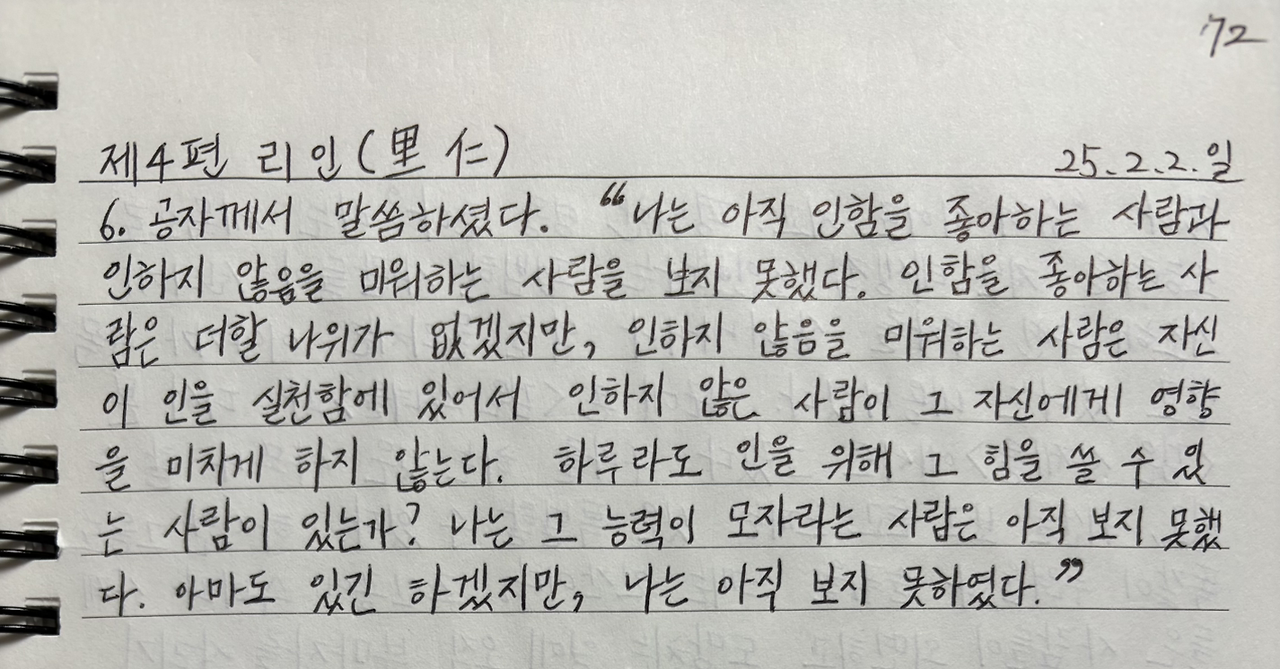 72
제4편 리인(里仁) 25.2.2.일
6. 공자께서 말씀하셨다. “나는 아직 인함을 좋아하는 사람과
인하지 않음을 미워하는 사람을 보지 못했다. 인함을 좋아하는 사
람은 더할 나위가 없겠지만, 인하지 않음을 미워하는 사람은 자신
이 인을 실천함에 있어서 인하지 않은 사람이 그 자신에게 영향
을 미치게 하지 않는다. 하루라도 인을 위해 그 힘을 쓸 수 있
는 사람이 있는가? 나는 그 능력이 모자라는 사람은 아직 보지 못했
다. 아마도 있긴 하겠지만, 나는 아직 보지 못하였다.”